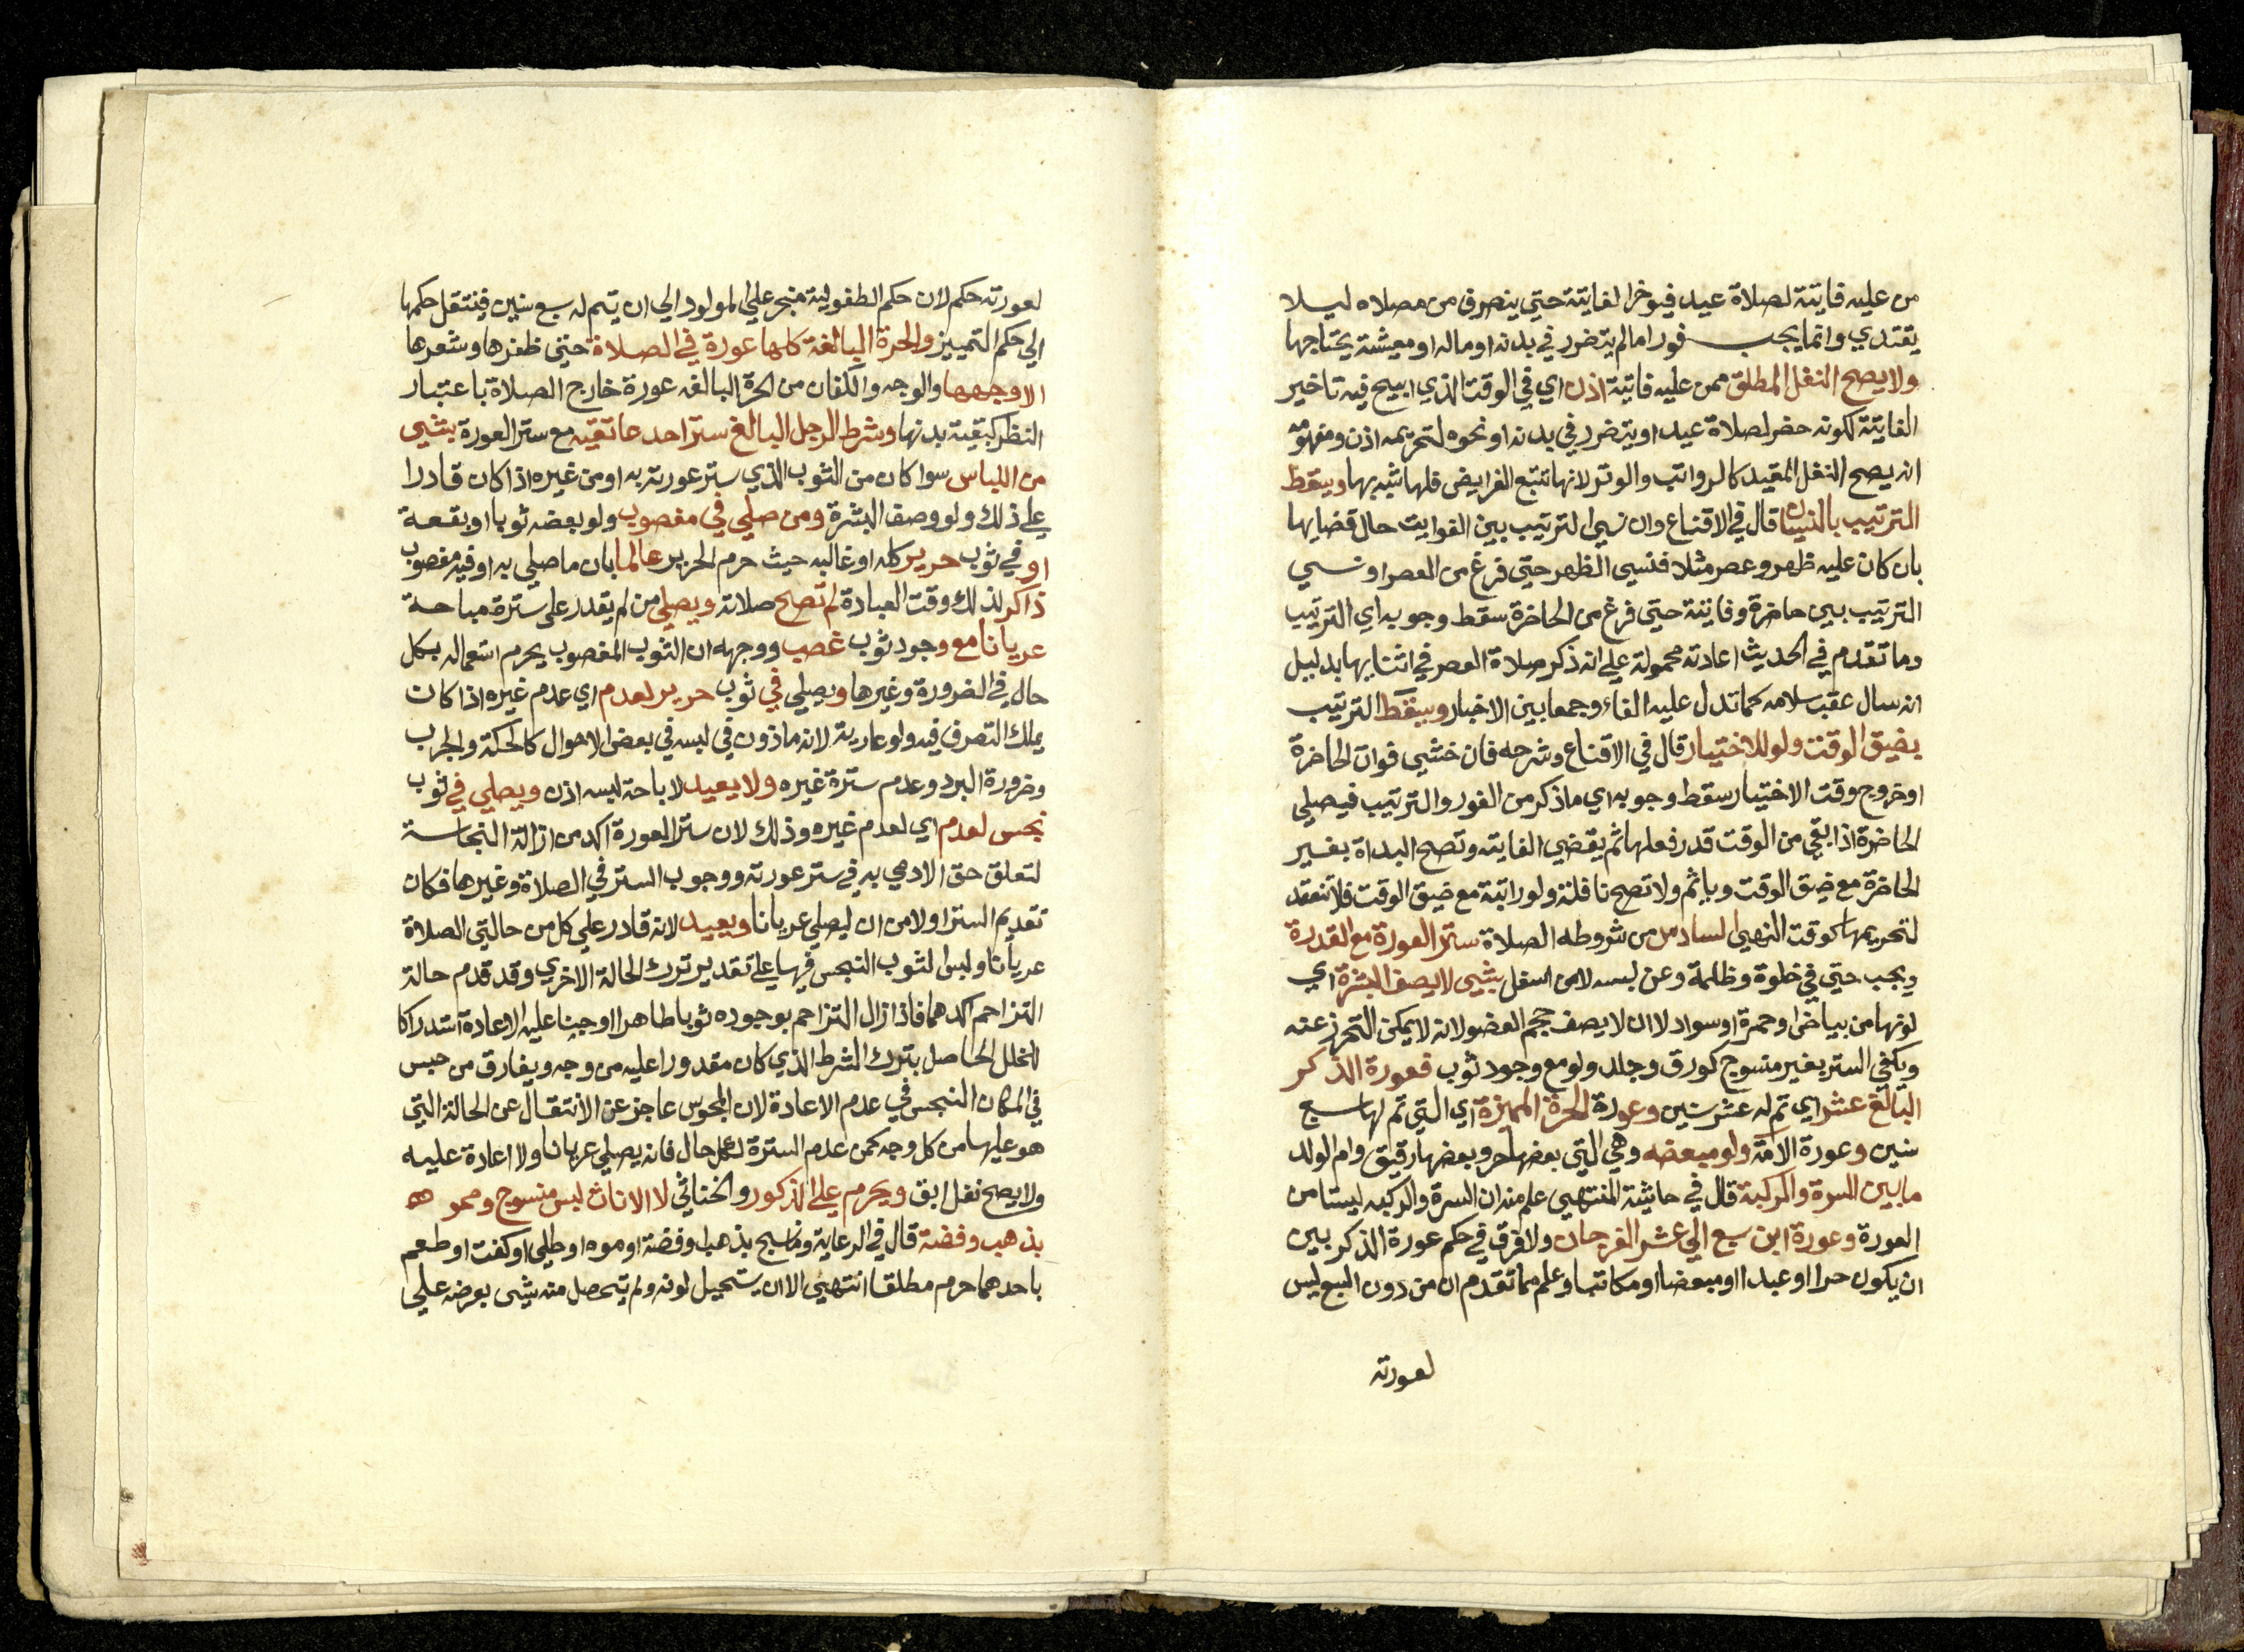 من عليه فايتة لصلاة عيد فيوخر الفايتة حتي ينصرف من مصلاه ليلا
يقتدي وانما يجب فورا ما لم يتضرر في بدنه او ماله او معيشة يحتاجها
ولا يصح النفل المطلق ممن عليه فايتة اذن اي في الوقت الذي ابيح فيه تاخير
الفايتة لكونه حضر لصلاة عيد او يتضرر في بدنه او نحوه لتحريمه اذن ومفهومه
انه يصح النفل المقيد كالرواتب والوتر لانها تتبع الفرايض فلها شبه بها ويسقط
الترتيب بالنسيان قال في الاقناع وان نسي الترتيب بين الفوايت حال قضايها
بان كان عليه ظهر وعصر مثلا فنسي الظهر حتي فرغ من العصر او نسي
الترتيب بين حاضرة وفايتة حتي فرغ من الحاضرة سقط وجوبه اي الترتيب
وما تقدم في الحديث اعادته محمولة علي انه ذكر صلاة العصر في اثنايها بدليل
انه سال عقب سلامه كما تدل عليه الفاء وجمعا بين الاخبار ويسقط الترتيب
بضيق الوقت ولو للاختيار قال في الاقناع وشرحه فان خشي فوات الحاضرة
او خروج وقت الاختيار سقط وجوبه اي ما ذكر من الفور والترتيب فيصلي
الحاضرة اذا بقي من الوقت قدر فعلها ثم يقضي الفايته وتصح البداة بغير
الحاضرة مع ضيق الوقت وياثم ولا تصح نافلة ولو راتبة مع ضيق الوقت فلا تنعقد
لتحريمها كوقت النهي السادس من شروطه الصلاة ستر العورة مع القدرة
ويجب حتي في خلوة وظلمة وعن لبسه لا من اسفل بشي لا يصف البشرة اي
لونها من بياض او حمرة او سواد لا ان لا يصف حجم العضو لانه لا يمكن التحرز عنه
ويكفي الستر بغير منسوج كورق وجلد ولو مع وجود ثوب فعورة الذكر
البالغ عشرا اي تم له عشر سنين وعورة الحرة المميزة اي التي تم لها سبع
سنين وعورة الامة ولو مبعضه وهي التي بعضها حر وبعضها رقيق وام الولد
ما بين السرة والركبة قال في حاشية المنتهي علم منه ان السرة والركبه ليستا من
العورة وعورة ابن سبع الي عشر الفرجان ولا فرق في حكم عورة الذكر بين
ان يكون حرا او عبدا او مبعضا او مكاتبا وعلم مما تقدم ان من دون السبع ليس
لعورته
لعورته حكم لان حكم الطفولية منجر علي المولود الي ان يتم له سبع سنين فينتقل حكمها
الي حكم التمييز والحرة البالغة كلها عورة في الصلاة حتي ظفرها وشعرها
الا وجهها والوجه والكفان من الحرة البالغه عورة خارج الصلاة باعتبار
النظر كبقية بدنها وشرط الرجل البالغ ستر احد عاتقيه مع ستر العورة بشي
من اللباس سوا كان من الثوب الذي ستر عورته به او من غيره اذا كان قادرا
علي ذلك ولو وصف البشرة ومن صلي في مغصوب ولو بعضه ثوبا او بقعة
او في ثوب حرير كله او غالبه حيث حرم الحرير عالما بان ما صلي به او فيه مغصوب
ذاكرا لذلك وقت العبادة لم تصح صلاته ويصلي من لم يقدر علي سترة مباحة
عريانا مع وجود ثوب غصب ووجهه ان الثوب المغصوب يحرم استعماله بكل
حال في الضرورة وغيرها ويصلي في ثوب حرير لعدم اي عدم غيره اذا كان
يملك التصرف فيه ولو عارية لانه ماذون في لبسه في بعض الاحوال كالحكة والجرب
وضرورة البرد وعدم سترة غيره ولا يعيد لاباحة لبسه اذن ويصلي في ثوب
نجس لعدم اي لعدم غيره وذلك لان ستر العورة اكد من ازالة النجاسة
لتعلق حق الادمي به في ستر عورته ووجوب الستر في الصلاة وغيرها فكان
تقديم الستر اولا من ان ليصلي عريانا ويعيد لانه قادر علي كل من حالتي الصلاة
عريانا ولبس الثوب النجس فيها علي تقدير ترك الحالة الاخري وقد قدم حالة
التزاحم اكدهما فاذا زال التزاحم بوجوده ثوبا طاهرا اوجبنا عليه الاعادة استدراكا
للخلل الحاصل بترك الشرط الذي كان مقدورا عليه من وجه ويفارق من حبس
في المكان النجس في عدم الاعادة لان المحبوس عاجز عن الانتقال عن الحالة التي
هو عليها من كل وجه كمن عدم السترة لكل حال فانه يصلي عريانا ولا اعادة عليه
ولا يصح نفل ابق ويحرم علي الذكور والخناثي لا الاناث لبس منسوج ومموه
بذهب وفضة قال في الرعاية وما نسج بذهب او فضة او موه او طلي او كفت او طعم
باحدهما حرم مطلقا انتهي الا ان يستحيل لونه ولم يتحصل منه شي بعرضه علي